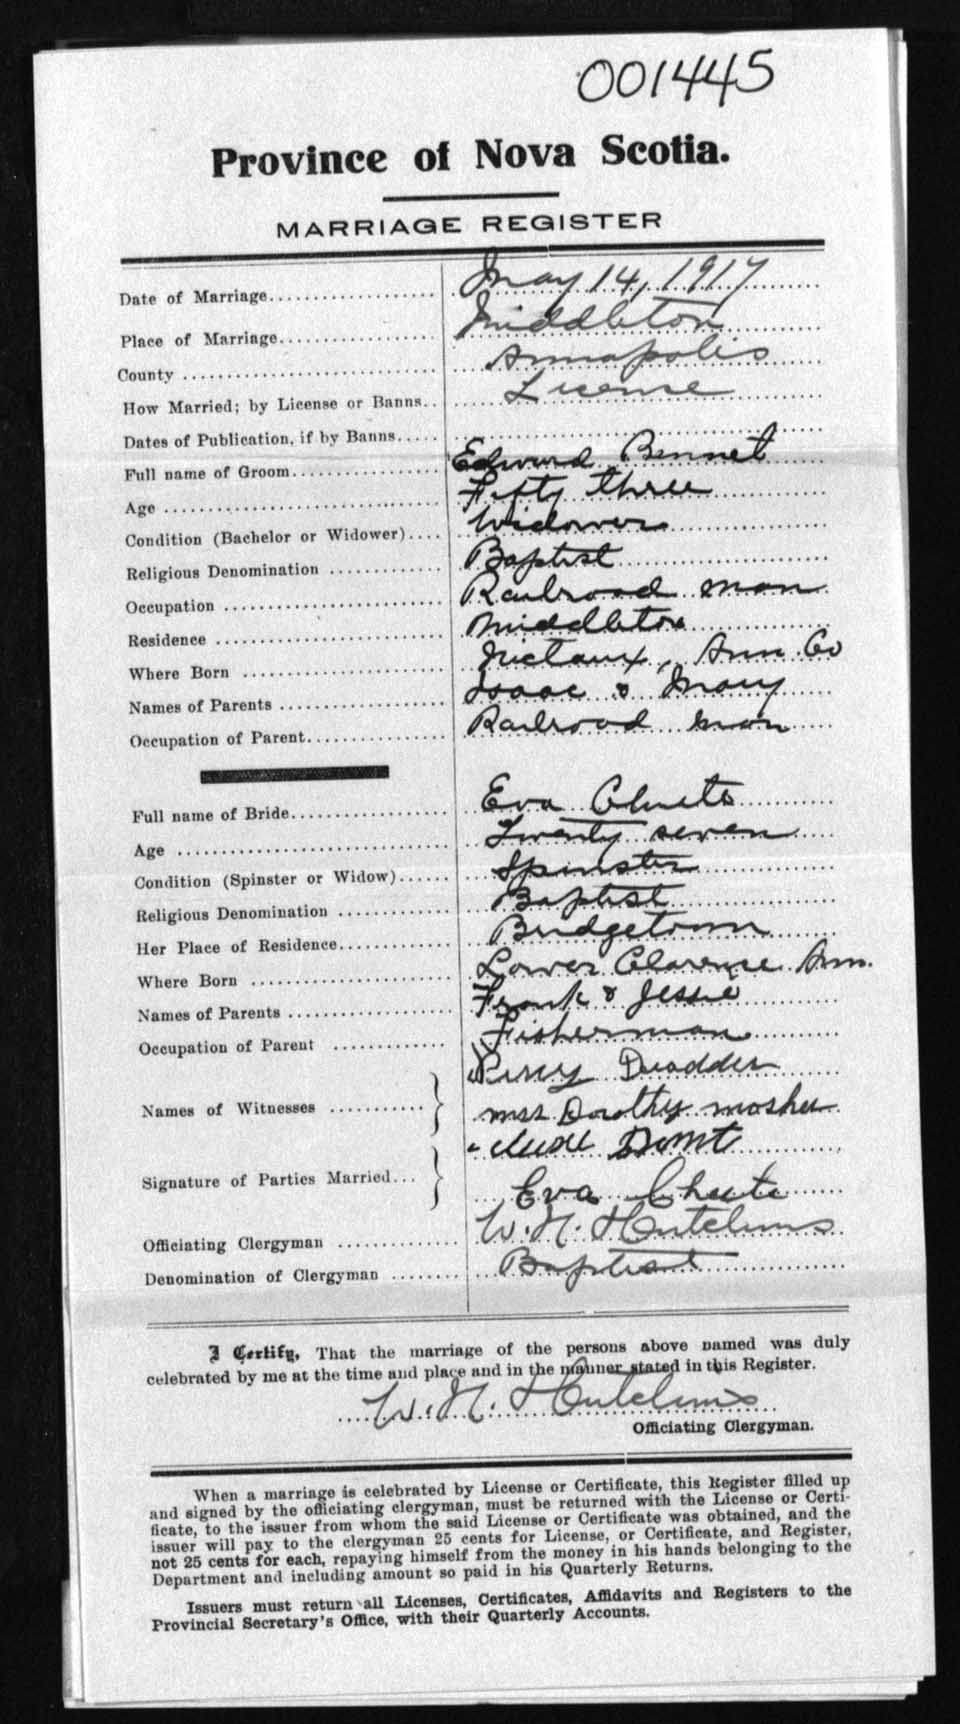 001445
Province of Nova Scotia.
MARRIAGE REGISTER
Date of Marriage.................... May 14, 1917
Place of Marriage................... Middleton
County .............................. Annapolis
How Married; by License or Banns.. License
Dates of Publication, if by Banns.....
Full name of Groom.................. Edward Bennet
Age ................................. Fifty three
Condition (Bachelor or Widower).... Widower
Religious Denomination ............. Baptist
Occupation .......................... Railroad man
Residence ........................... Middleton
Where Born ......................... Nictaux, Ann. Co
Names of Parents .................... Isaac & Mary
Occupation of Parent................. Railroad man
Full name of Bride................... Eva Chute
Age ................................. Twenty seven
Condition (Spinster or Widow)...... Spinster
Religious Denomination ............. Baptist
Her Place of Residence............. Bridgetown
Where Born ......................... Lower Clarence Ann.
Names of Parents .................... Frank & Jessie
Occupation of Parent ............. Fisherman
Names of Witnesses ........... Percy
Miss Dorothy Mosher
Signature of Parties Married...
Eva Chute
Officiating Clergyman ............. W. N. Hutchins
Denomination of Clergyman ........ Baptist
I Certify, That the marriage of the persons above named was duly
celebrated by me at the time and place and in the manner stated in this Register.
W. N. Hutchins
Officiating Clergyman.
When a marriage is celebrated by License or Certificate, this Register filled up
and signed by the officiating clergyman, must be returned with the License or Certi-
ficate, to the issuer from whom the said License or Certificate was obtained, and the
issuer will pay to the clergyman 25 cents for License, or Certificate, and Register,
not 25 cents for each, repaying himself from the money in his hands belonging to the
Department and including amount so paid in his Quarterly Returns.
Issuers must return all Licenses, Certificates, Affidavits and Registers to the
Provincial Secretary's Office, with their Quarterly Accounts.